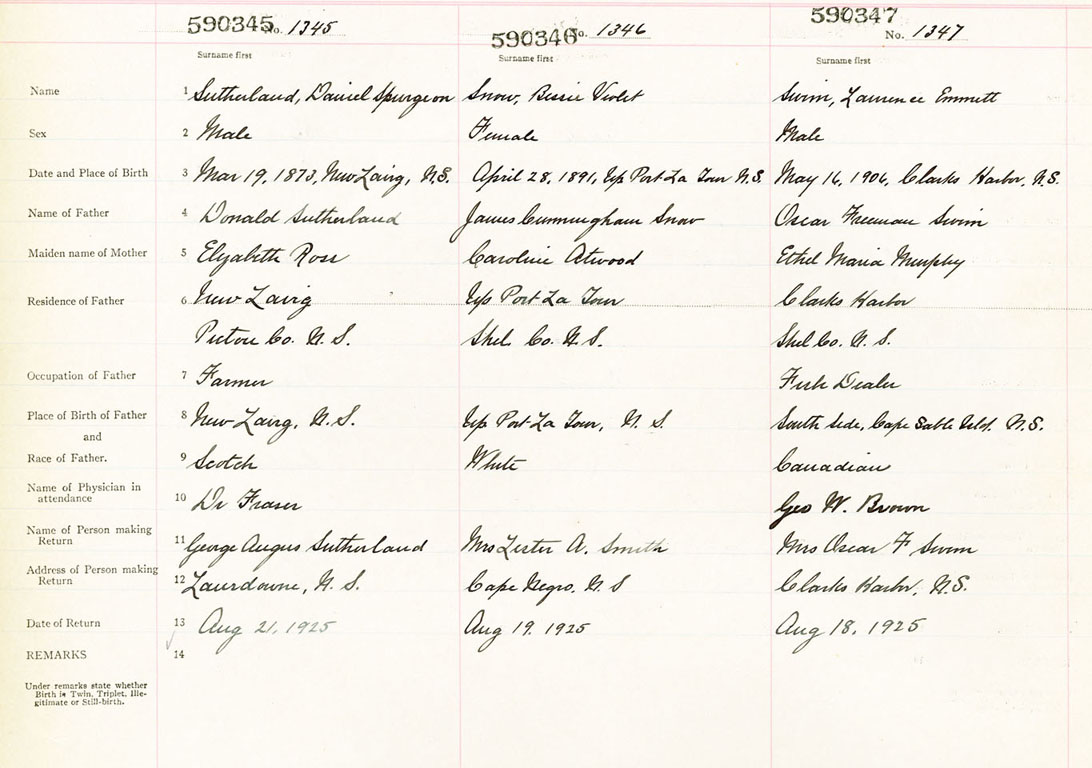 590345 No. 1345 590346 No. 1346 590347 No. 1347
Surname first Surname first Surname first
Name 1 Sutherland, Daniel Spurgeon Snow, Bessie Violet Swim, Laurence Emmett
Sex 2 Male Female Male
Date and Place of Birth 3 Mar 19, 1873, New Lairg, N.S. April 28, 1891, Up Port La Tour N.S. May 16, 1906, Clarks Harbor, N.S.
Name of Father 4 Donald Sutherland James Cunningham Snow Oscar Freeman Swim
Maiden name of Mother 5 Elizabeth Ross Caroline Atwood Ethel Maria Murphy
Residence of Father 6 New Lairg Up Port La Tour Clarks Harbor
Pictou Co. N.S. Shel Co. N.S. Shel Co. N.S.
Occupation of Father 7 Farmer Fish Dealer
Place of Birth of Father 8 New Lairg, N.S. Up Port La Tour, N.S South Side, Cape Sable Isld. N.S.
and
Race of Father. 9 Scotch White Canadian
Name of Physician in
attendance 10 Dr Fraser Geo W. Brown
Name of Person making
Return 11 George Angus Sutherland Mrs Lester A. Smith Mrs Oscar F Swim
Address of Person making
Return 12 Lansdowne, N.S. Cape Negro, N.S Clarks Harbor, N.S.
Date of Return 13 Aug 21, 1925 Aug 19. 1925 Aug 18, 1925
REMARKS 14
Under remarks state whether
Birth is Twin, Triplet, Ille-
gitimate or Still-birth.